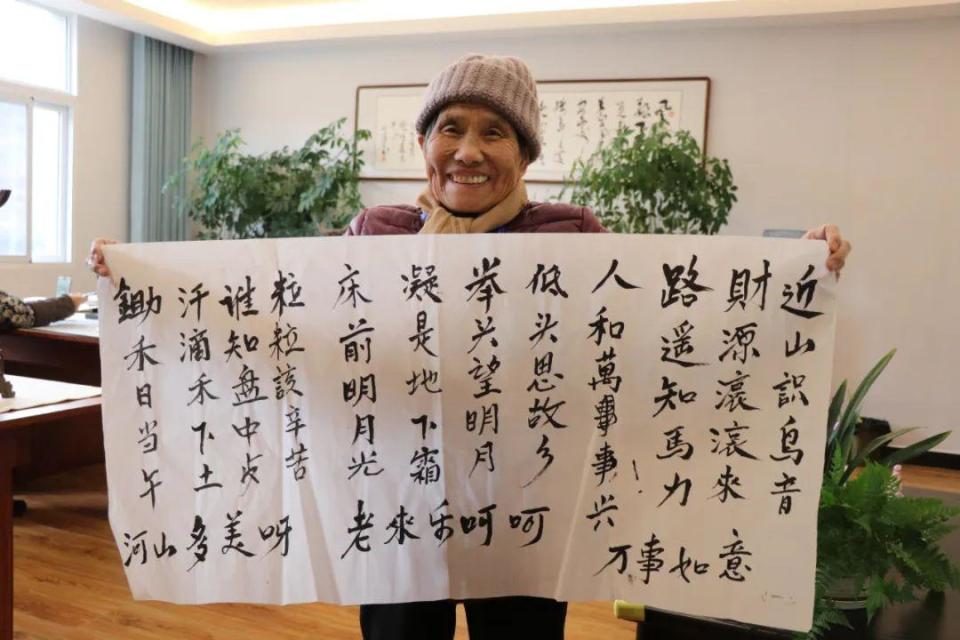 鋤禾日当午
汗滴禾下土
谁知盘中
粒粒該辛苦
床前明月光
凝是地下霜
举头望明月
低头思故乡
人和萬事事！兴
路遥知馬力
財源滚滚來
近山识鸟音
河山多美呀
老來乐呵呵
万事如意